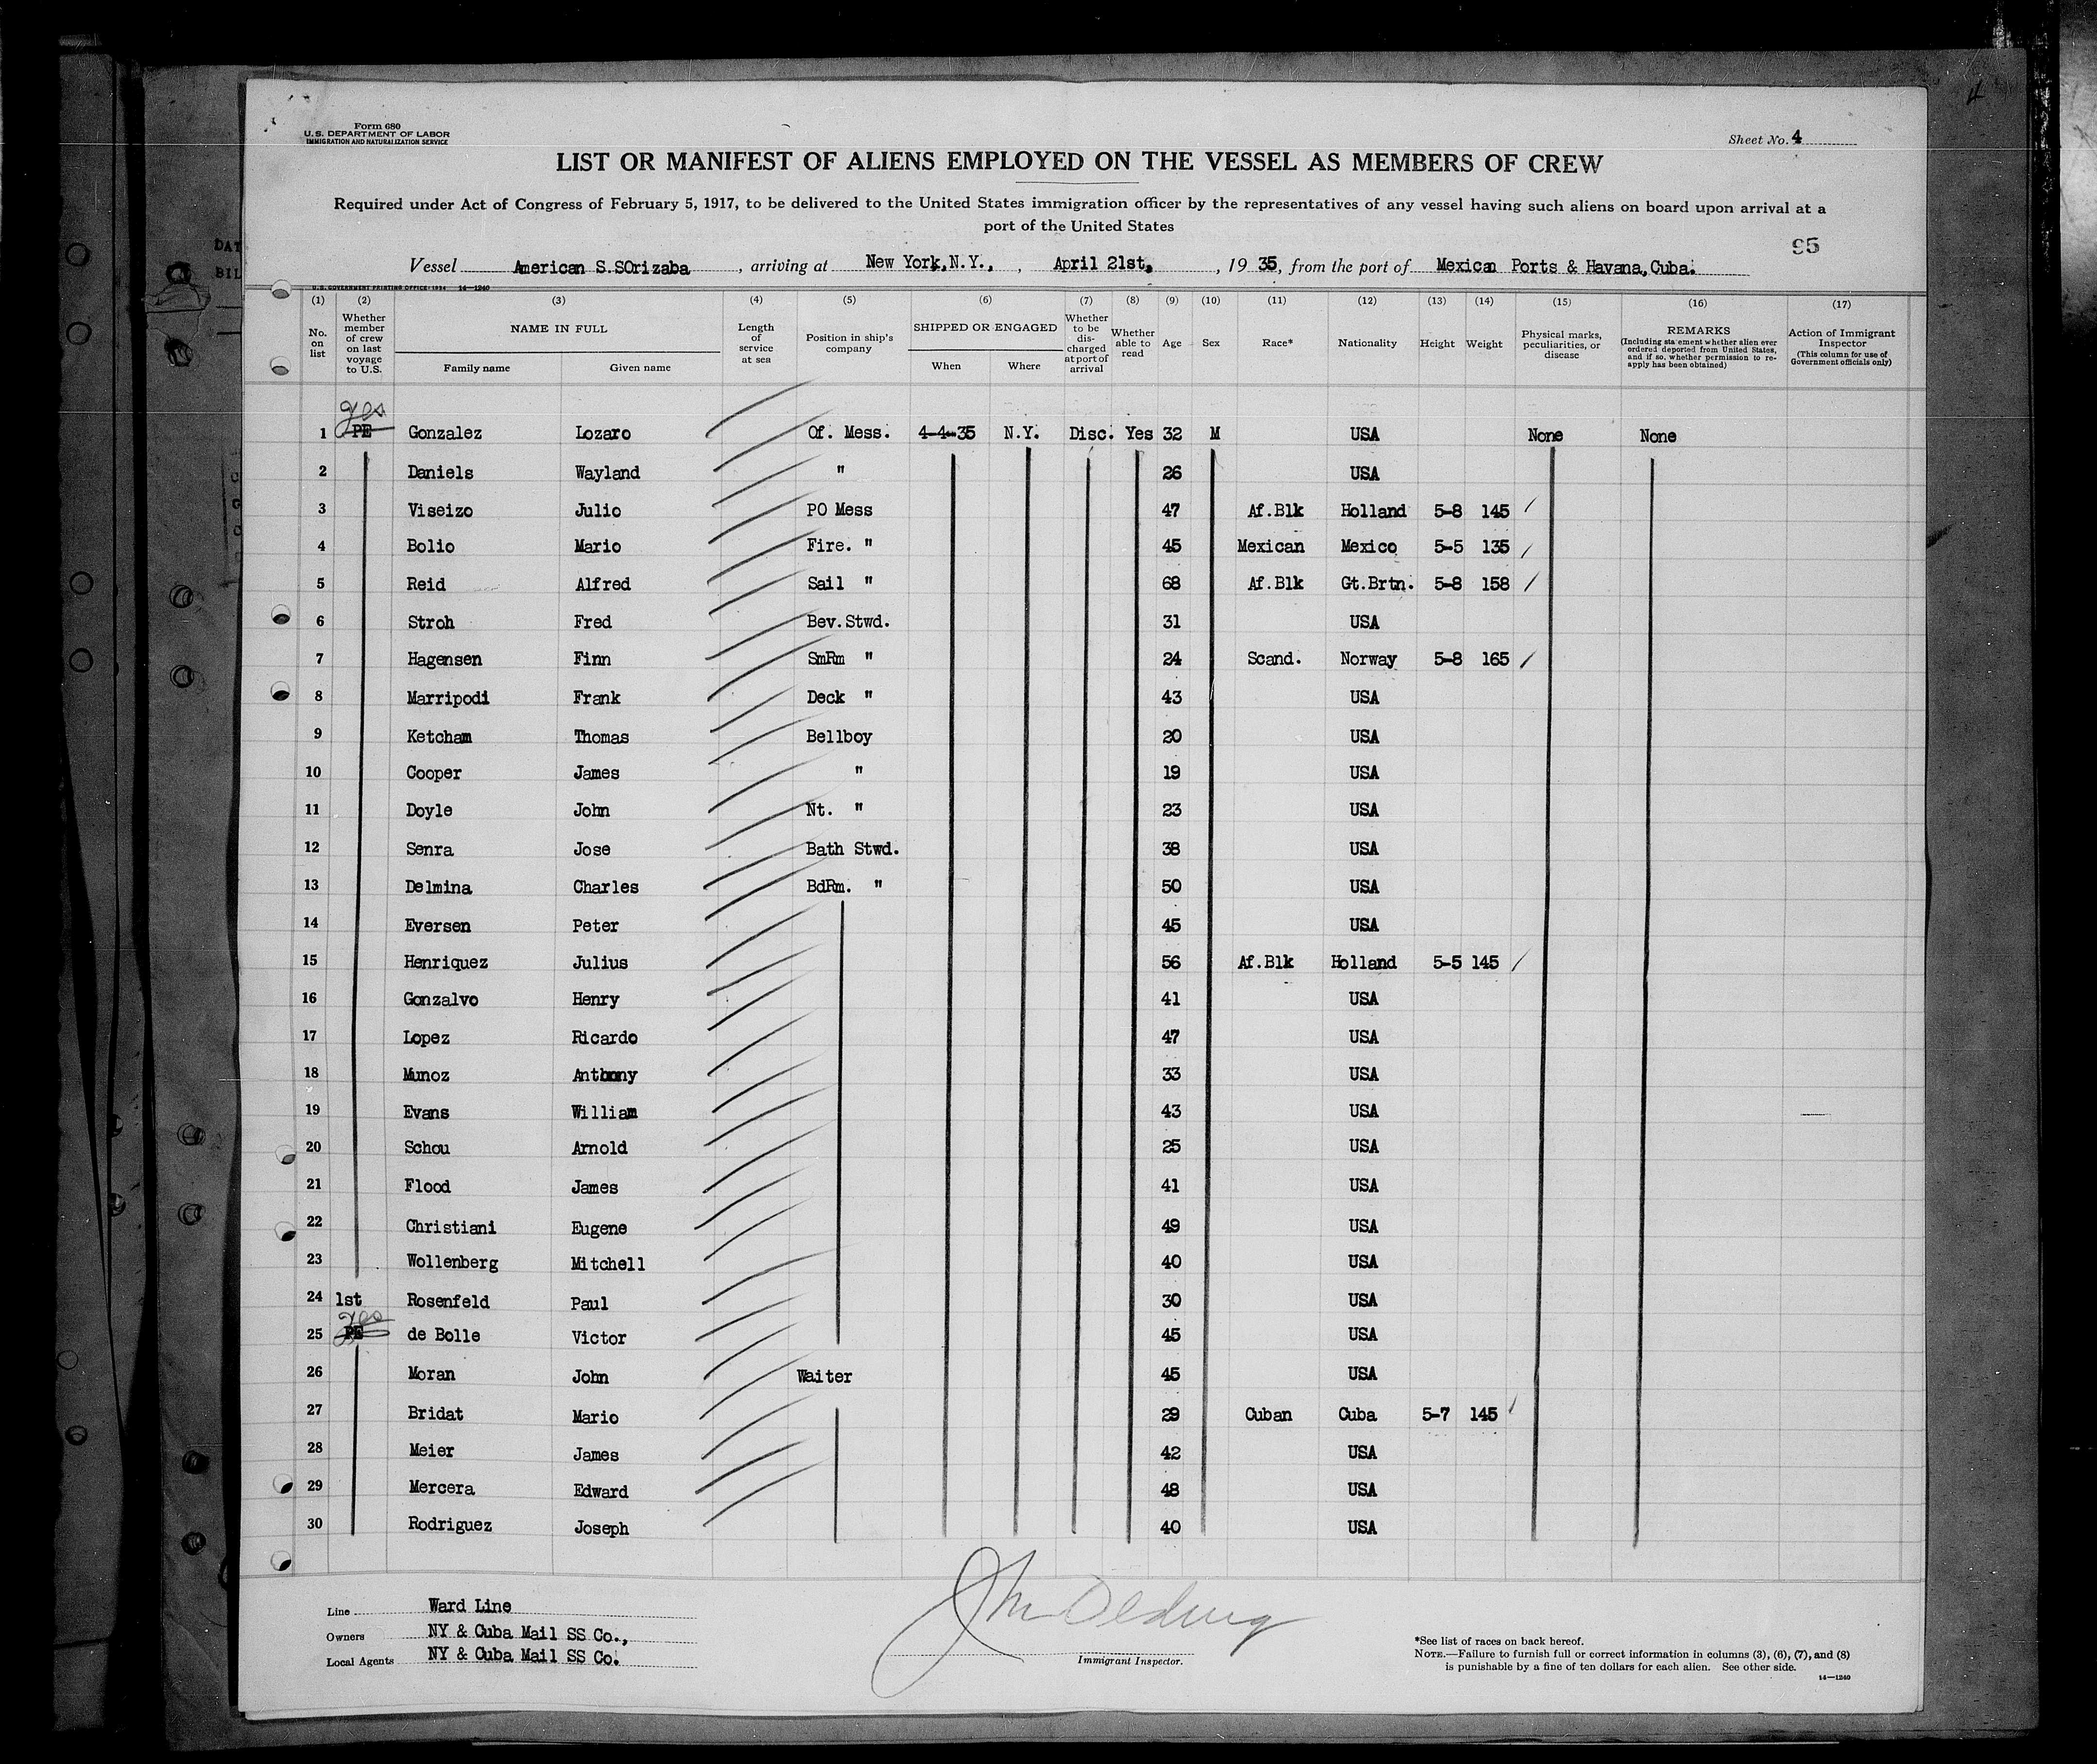 Form 680
U. S. DEPARTMENT OF LABOR
IMMIGRATION AND NATURALIZATION SERVICE
Sheet No. 4
LIST OR MANIFEST OF ALIENS EMPLOYED ON THE VESSEL AS MEMBERS OF CREW
Required under Act of Congress of February 5, 1917, to be delivered to the United States immigration officer by the representatives of any vessel having such aliens on board upon arrival at a
port of the United States
95
Vessel American S.SOrizaba, arriving at New York,N.Y., , April 21st, , 19 35, from the port of Mexican Ports & Havana,Cuba.
U.S. GOVERNMENT PRINTING OFFICE: 1934 14—1240
(1) (2) (3) (4) (5) (6) (7) (8) (9) (10) (11) (12) (13) (14) (15) (16) (17)
No. on list
Whether member of crew on last voyage to U.S.
NAME IN FULL
Family name Given name
Length of service at sea
Position in ship's company
SHIPPED OR ENGAGED
When Where
Whether to be discharged at port of arrival
Whether able to read
Age Sex Race* Nationality Height Weight
Physical marks, peculiarities, or disease
REMARKS
(Including statement whether alien ever ordered deported from United States, and if so, whether permission to re-apply has been obtained)
Action of Immigrant Inspector
(This column for use of Government officials only)
yes
1 PE Gonzalez Lozaro Of. Mess. 4-4-35 N.Y. Disc. Yes 32 M USA None None
2 Daniels Wayland " 26 USA
3 Viseizo Julio PO Mess 47 Af.Blk Holland 5-8 145
4 Bolio Mario Fire. " 45 Mexican Mexico 5-5 135
5 Reid Alfred Sail " 68 Af.Blk Gt.Brtn. 5-8 158
6 Stroh Fred Bev.Stwd. 31 USA
7 Hagensen Finn SmRm " 24 Scand. Norway 5-8 165
8 Marripodi Frank Deck " 43 USA
9 Ketcham Thomas Bellboy 20 USA
10 Cooper James " 19 USA
11 Doyle John Nt. " 23 USA
12 Senra Jose Bath Stwd. 38 USA
13 Delmina Charles BdRm. " 50 USA
14 Eversen Peter 45 USA
15 Henriquez Julius 56 Af.Blk Holland 5-5 145
16 Gonzalvo Henry 41 USA
17 Lopez Ricardo 47 USA
18 Munoz Anthony 33 USA
19 Evans William 43 USA
20 Schou Arnold 25 USA
21 Flood James 41 USA
22 Christiani Eugene 49 USA
23 Wollenberg Mitchell 40 USA
24 1st Rosenfeld Paul 30 USA
yes
25 PE de Bolle Victor 45 USA
26 Moran John Waiter 45 USA
27 Bridat Mario 29 Cuban Cuba 5-7 145
28 Meier James 42 USA
29 Mercera Edward 48 USA
30 Rodriguez Joseph 40 USA
Line Ward Line
Owners NY & Cuba Mail SS Co.,
Local Agents NY & Cuba Mail SS Co.
Immigrant Inspector.
*See list of races on back hereof.
NOTE.—Failure to furnish full or correct information in columns (3), (6), (7), and (8)
is punishable by a fine of ten dollars for each alien. See other side.
14—1240